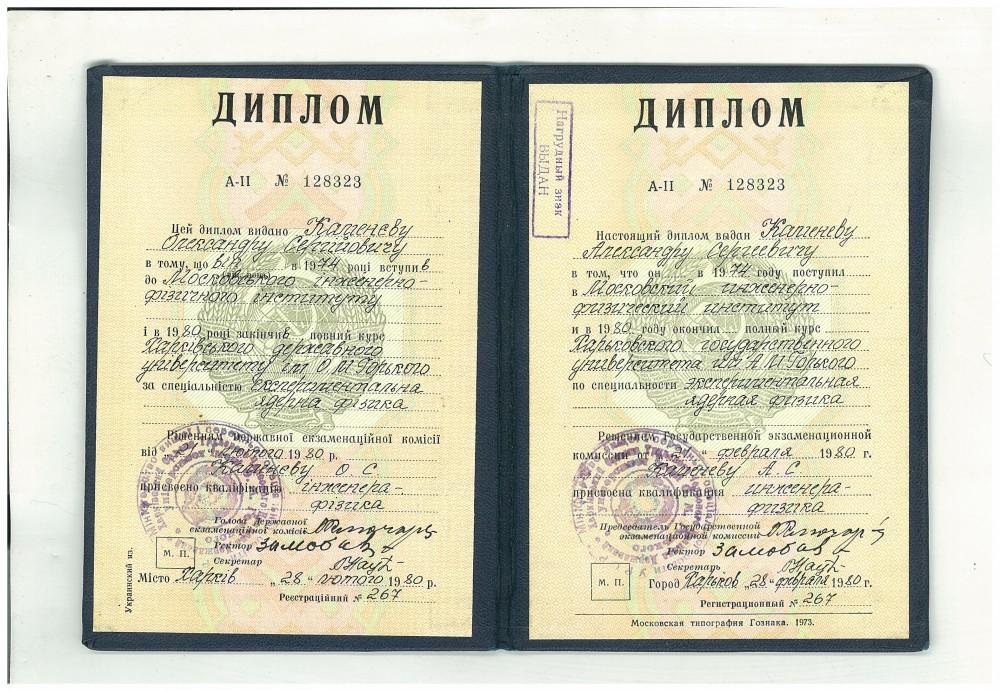 ДИПЛОМ
А-II № 128323
Цей диплом видано Кашенєву
Олександру Сергійовичу
в тому, що він в 1974 році вступив
до Московського інженерно-
фізичного інституту
і в 1980 році закінчив повний курс
Харківського державного
університету ім О.М.Горького
за спеціальністю експериментальна
ядерна фізика
Рішенням Державної екзаменаційної комісії
від лютого 1980 р.
Кашенєву О. С.
присвоєно кваліфікацію інженера-
фізика
Голова Державної
екзаменаційної комісії
Ректор
Секретар
М. П.
Місто Харків „28“ лютого 1980 р.
Реєстраційний № 267
Украинский яз.
ДИПЛОМ
А-II № 128323
Нагрудный знак
ВЫДАН
Настоящий диплом выдан Кашеневу
Александру Сергеевичу
в том, что он в 1974 году поступил
в Московский инженерно-
физический институт
и в 1980 году окончил полный курс
Харьковского государственного
университета им А.М.Горького
по специальности экспериментальная
ядерная физика
Решением Государственной экзаменационной
комиссии от февраля 1980 г.
Кашеневу А. С.
присвоена квалификация инженера-
физика
Председатель Государственной
экзаменационной комиссии
Ректор
Секретарь
М. П.
Город Харьков „28“ февраля 1980 г.
Регистрационный № 267
Московская типография Гознака. 1973.